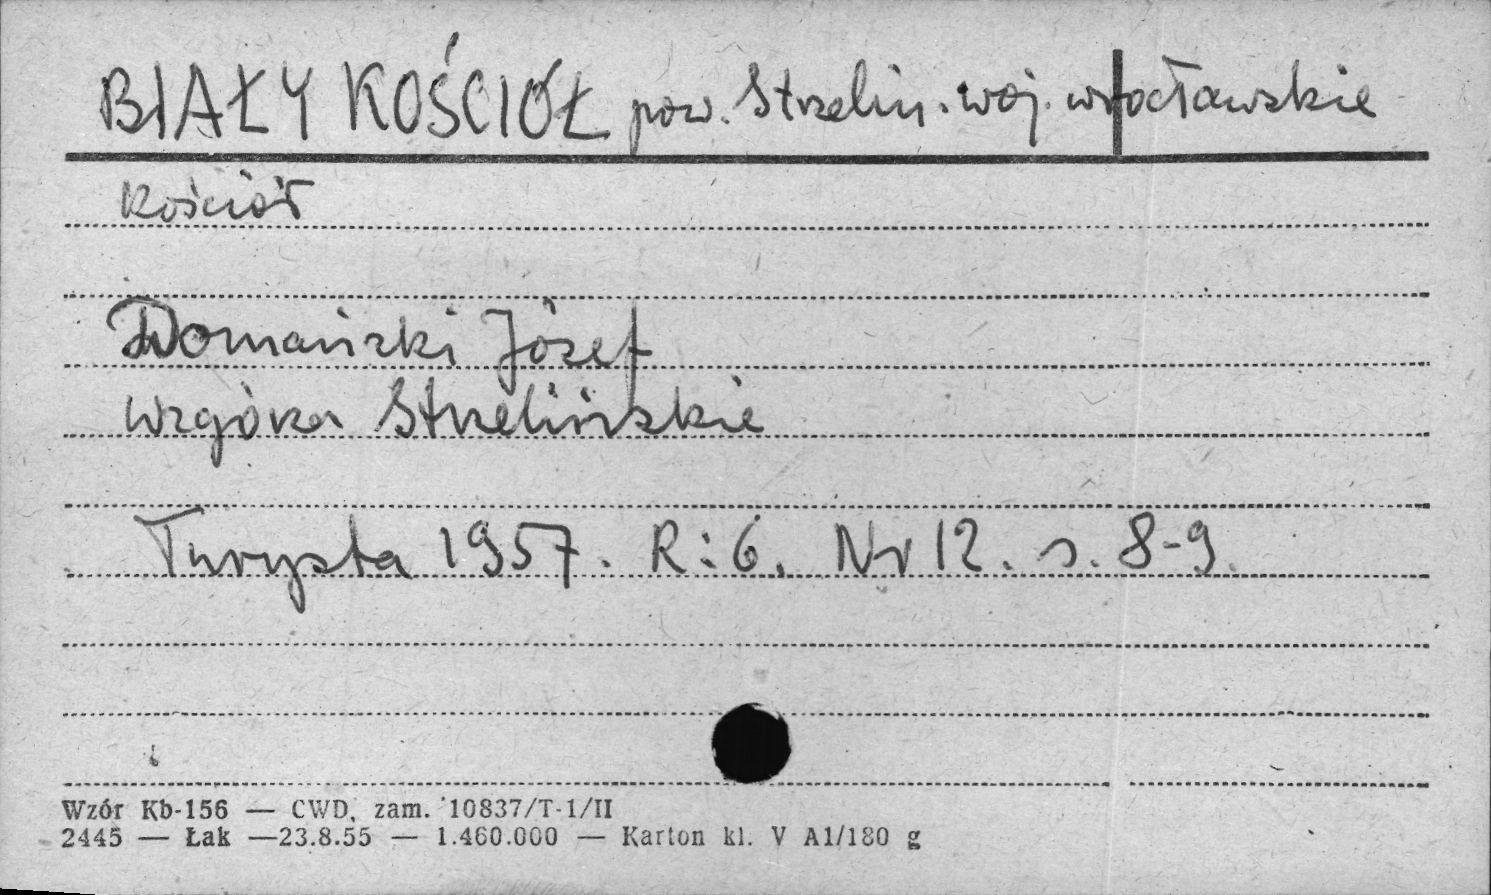 BIAŁY KOŚCIÓŁ pow. Strzelin. woj. wrocławskie
Kościół
Domański Józef
Wzgórza Strzelińskie
Turysta 1957. R: 6. Nr 12. s. 8-9.
Wzór Kb-156 — CWD, zam. 10837/T-1/II
2445 — Łak —23.8.55 — 1.460.000 — Karton kl. V A1/180 g